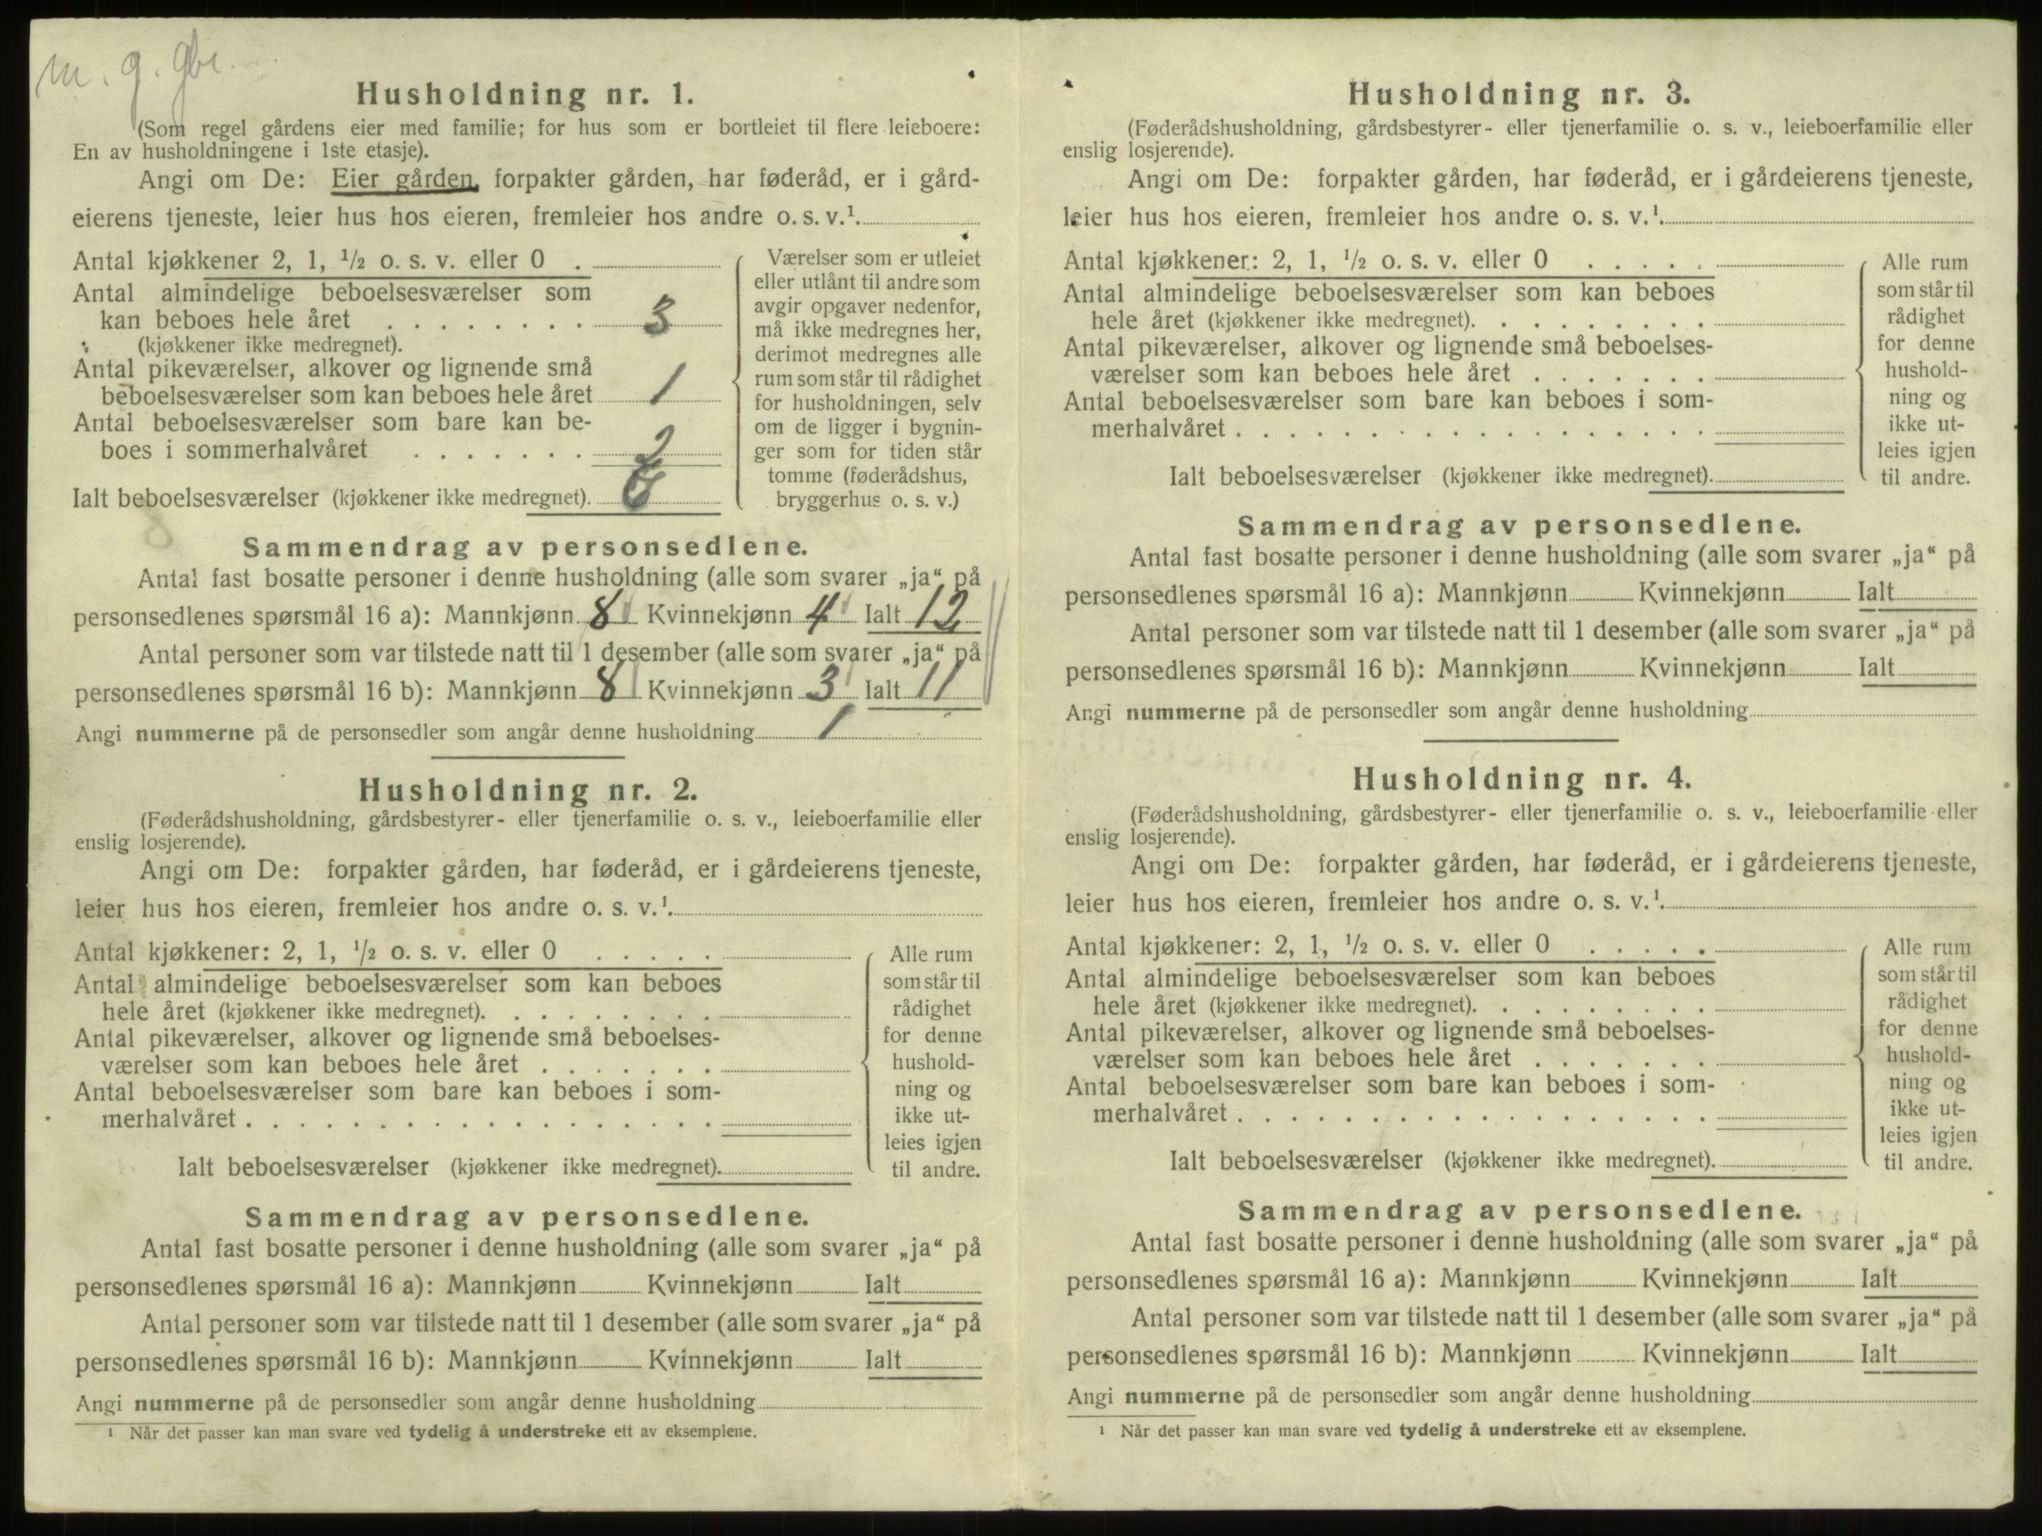 m. g. gbr.
Husholdning nr. 1.
(Som regel gårdens eier med familie; for hus som er bortleiet til flere leieboere:
En av husholdningene i 1ste etasje).
Angi om De: Eier gården, forpakter gården, har føderåd, er i gård-
eierens tjeneste, leier hus hos eieren, fremleier hos andre o. s. v.¹
Antal kjøkkener 2, 1, ½ o. s. v. eller 0 .
Antal almindelige beboelsesværelser som
kan beboes hele året . . . . . . . . 3
(kjøkkener ikke medregnet).
Antal pikeværelser, alkover og lignende små
beboelsesværelser som kan beboes hele året 1
Antal beboelsesværelser som bare kan be-
boes i sommerhalvåret . . . . . . . 2
Ialt beboelsesværelser (kjøkkener ikke medregnet). 6
Værelser som er utleiet
eller utlånt til andre som
avgir opgaver nedenfor,
må ikke medregnes her,
derimot medregnes alle
rum som står til rådighet
for husholdningen, selv
om de ligger i bygnin-
ger som for tiden står
tomme (føderådshus,
bryggerhus o. s. v.)
Sammendrag av personsedlene.
Antal fast bosatte personer i denne husholdning (alle som svarer „ja“ på
personsedlenes spørsmål 16 a): Mannkjønn 8 Kvinnekjønn 4 Ialt 12
Antal personer som var tilstede natt til 1 desember (alle som svarer „ja“ på
personsedlenes spørsmål 16 b): Mannkjønn 8 Kvinnekjønn 3 Ialt 11
Angi nummerne på de personsedler som angår denne husholdning 1
Husholdning nr. 2.
(Føderådshusholdning, gårdsbestyrer- eller tjenerfamilie o. s. v., leieboerfamilie eller
enslig losjerende).
Angi om De: forpakter gården, har føderåd, er i gårdeierens tjeneste,
leier hus hos eieren, fremleier hos andre o. s. v.¹
Antal kjøkkener: 2, 1, ½ o. s. v. eller 0 . . . . .
Antal almindelige beboelsesværelser som kan beboes
hele året (kjøkkener ikke medregnet). . . . . . . . .
Antal pikeværelser, alkover og lignende små beboelses-
værelser som kan beboes hele året . . . . . . .
Antal beboelsesværelser som bare kan beboes i som-
merhalvåret . . . . . . . . . . . . . . . . . .
Ialt beboelsesværelser (kjøkkener ikke medregnet).
Alle rum
som står til
rådighet
for denne
hushold-
ning og
ikke ut-
leies igjen
til andre.
Sammendrag av personsedlene.
Antal fast bosatte personer i denne husholdning (alle som svarer „ja“ på
personsedlenes spørsmål 16 a): Mannkjønn Kvinnekjønn Ialt
Antal personer som var tilstede natt til 1 desember (alle som svarer „ja“ på
personsedlenes spørsmål 16 b): Mannkjønn Kvinnekjønn Ialt
Angi nummerne på de personsedler som angår denne husholdning
¹ Når det passer kan man svare ved tydelig å understreke ett av eksemplene.
Husholdning nr. 3.
(Føderådshusholdning, gårdsbestyrer- eller tjenerfamilie o. s. v., leieboerfamilie eller
enslig losjerende).
Angi om De: forpakter gården, har føderåd, er i gårdeierens tjeneste,
leier hus hos eieren, fremleier hos andre o. s. v.¹
Antal kjøkkener: 2, 1, ½ o. s. v. eller 0 . . . . .
Antal almindelige beboelsesværelser som kan beboes
hele året (kjøkkener ikke medregnet). . . . . . . . .
Antal pikeværelser, alkover og lignende små beboelses-
værelser som kan beboes hele året . . . . . . .
Antal beboelsesværelser som bare kan beboes i som-
merhalvåret . . . . . . . . . . . . . . . . . .
Ialt beboelsesværelser (kjøkkener ikke medregnet).
Alle rum
som står til
rådighet
for denne
hushold-
ning og
ikke ut-
leies igjen
til andre.
Sammendrag av personsedlene.
Antal fast bosatte personer i denne husholdning (alle som svarer „ja“ på
personsedlenes spørsmål 16 a): Mannkjønn Kvinnekjønn Ialt
Antal personer som var tilstede natt til 1 desember (alle som svarer „ja“ på
personsedlenes spørsmål 16 b): Mannkjønn Kvinnekjønn Ialt
Angi nummerne på de personsedler som angår denne husholdning
Husholdning nr. 4.
(Føderådshusholdning, gårdsbestyrer- eller tjenerfamilie o. s. v., leieboerfamilie eller
enslig losjerende).
Angi om De: forpakter gården, har føderåd, er i gårdeierens tjeneste,
leier hus hos eieren, fremleier hos andre o. s. v.¹
Antal kjøkkener: 2, 1, ½ o. s. v. eller 0 . . . . .
Antal almindelige beboelsesværelser som kan beboes
hele året (kjøkkener ikke medregnet). . . . . . . . .
Antal pikeværelser, alkover og lignende små beboelses-
værelser som kan beboes hele året . . . . . . .
Antal beboelsesværelser som bare kan beboes i som-
merhalvåret . . . . . . . . . . . . . . . . . .
Ialt beboelsesværelser (kjøkkener ikke medregnet).
Alle rum
som står til
rådighet
for denne
hushold-
ning og
ikke ut-
leies igjen
til andre.
Sammendrag av personsedlene.
Antal fast bosatte personer i denne husholdning (alle som svarer „ja“ på
personsedlenes spørsmål 16 a): Mannkjønn Kvinnekjønn Ialt
Antal personer som var tilstede natt til 1 desember (alle som svarer „ja“ på
personsedlenes spørsmål 16 b): Mannkjønn Kvinnekjønn Ialt
Angi nummerne på de personsedler som angår denne husholdning
¹ Når det passer kan man svare ved tydelig å understreke ett av eksemplene.